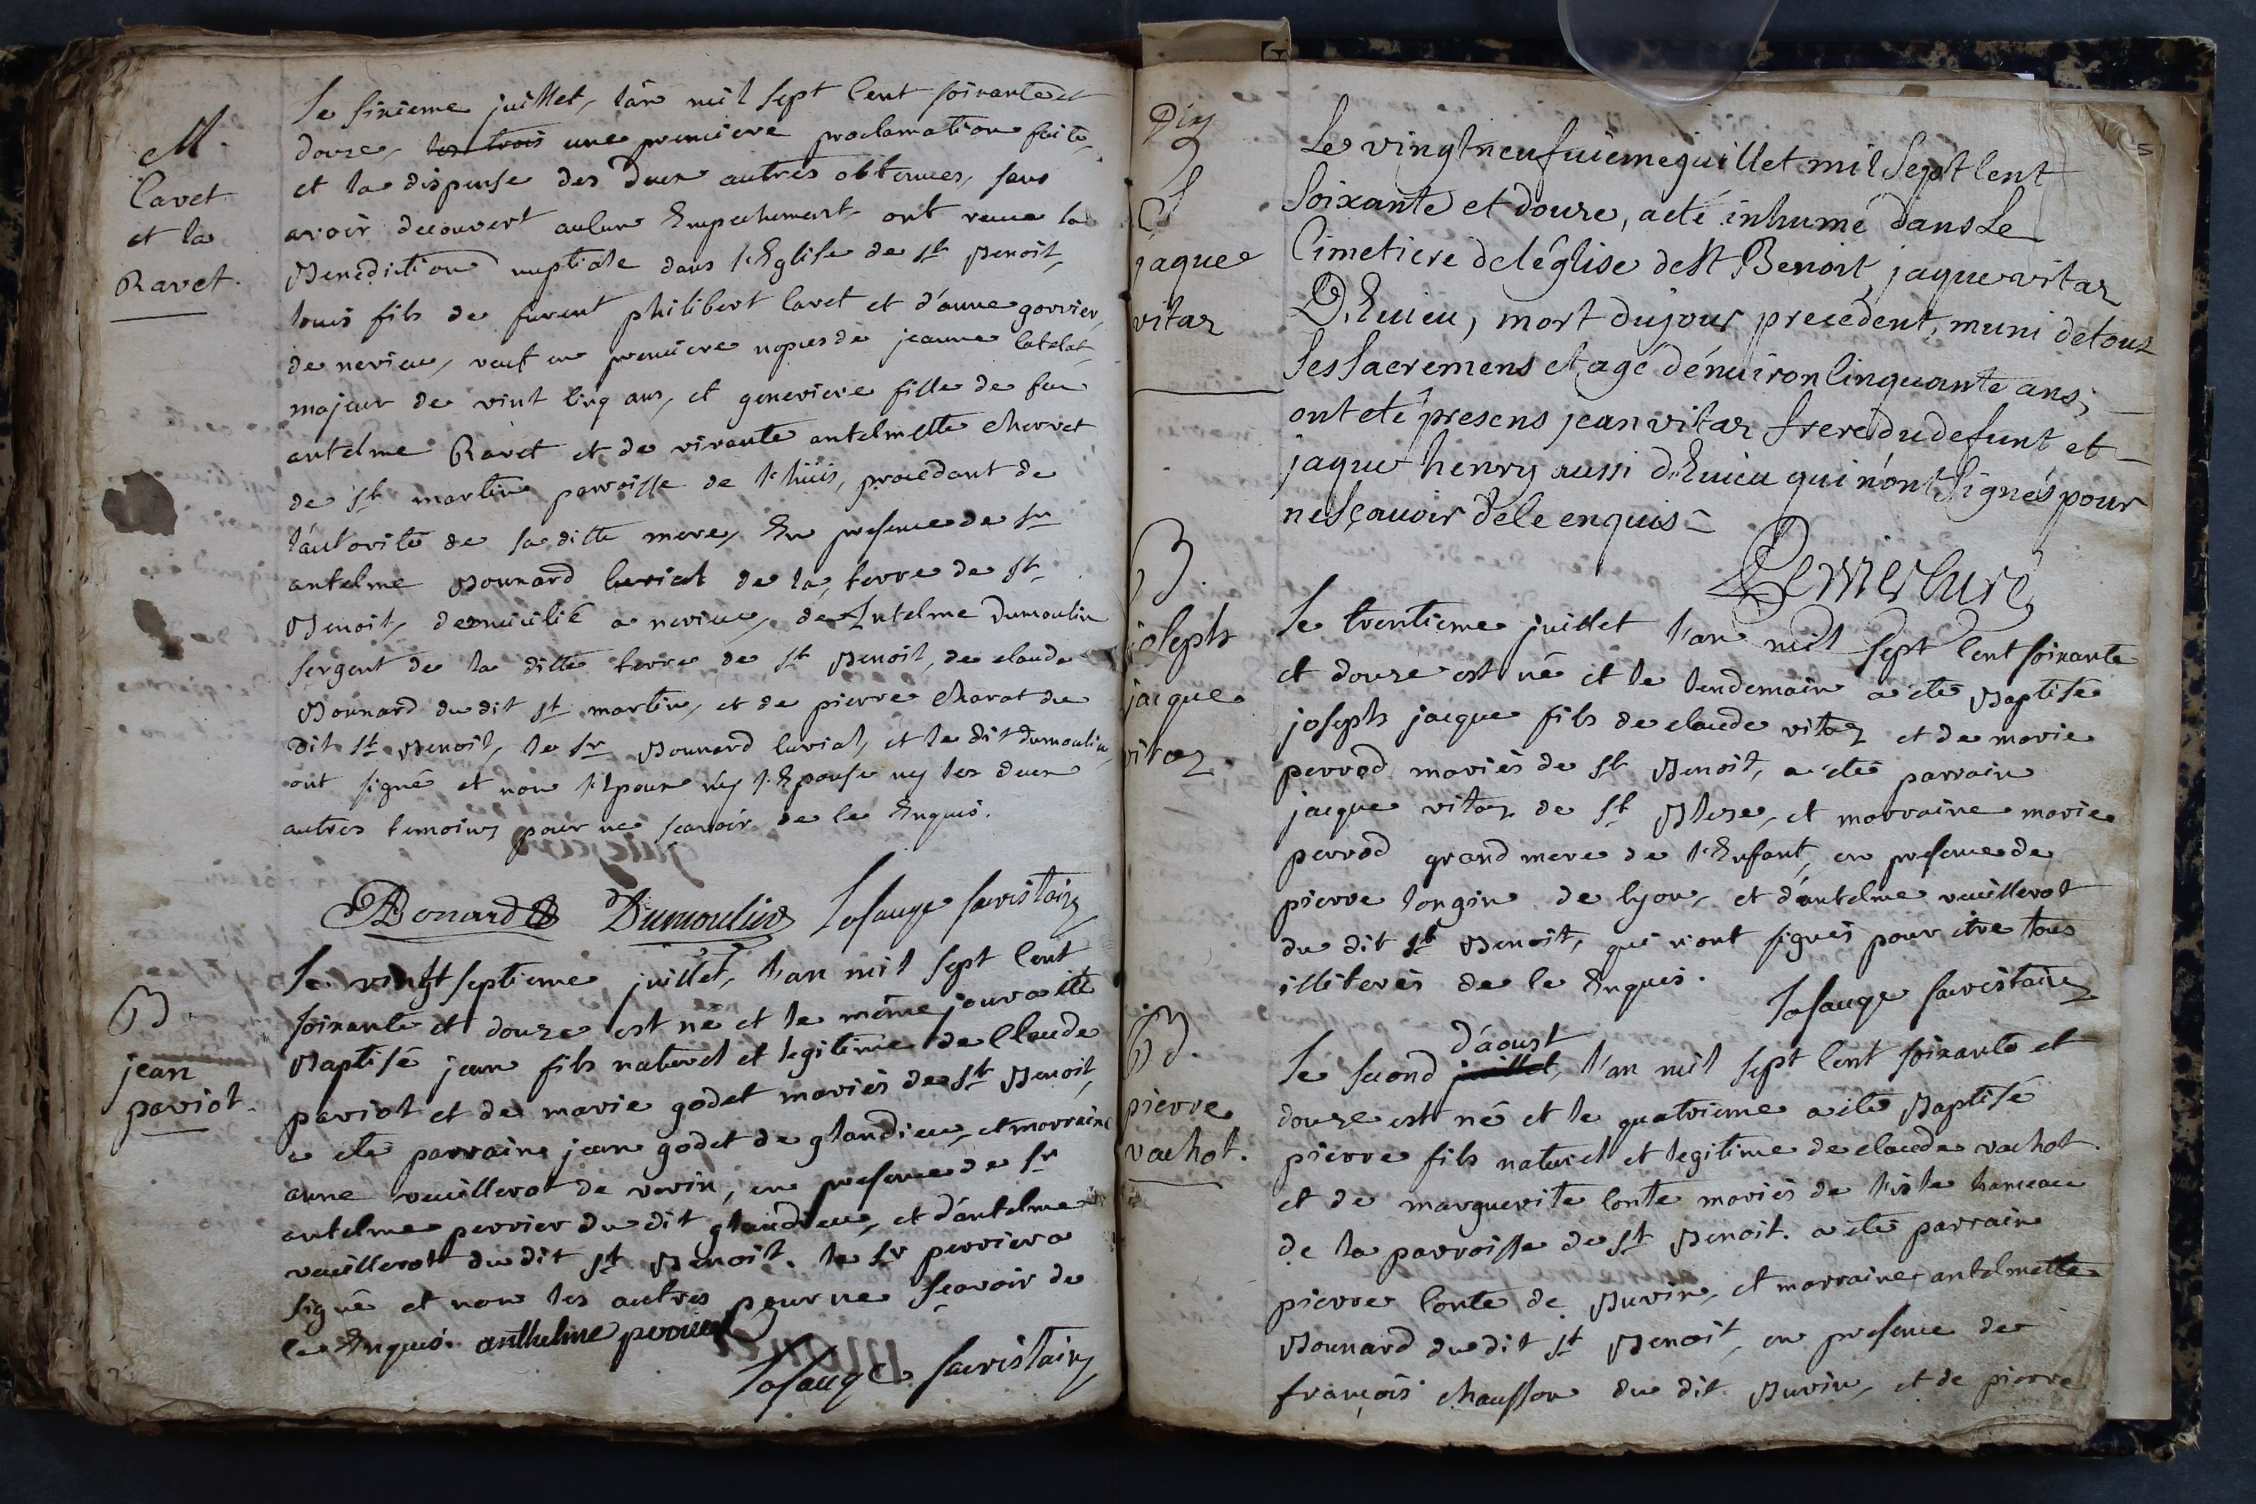 M.
Cavet
et la
Ravet.
Le sixieme juillet, l'an mil sept cent soixante et
douze, les trois une premiere proclamation faite,
et la dispense des deux autres obtenues, sans
avoir decouvert aucun Empechement ont recue la
Benediction nuptiale dans l'Eglise de st Benoit,
louis fils de furent philibert Cavet et d'anne gorrier,
de nevieu, veuf en premiere nopces de jeanne
majeur de vint cinq ans, et genevieve fille de feu
antelme Ravet et de vivante antelmette chervet
de st martin parroisse de lhuis, procedant de
l'autorité de sa ditte mere, En presence de sr
antelme Bonnard curial de la terre de st
Benoit, domicilié a nevieu, de Antelme Dumoulin
sergent de la ditte terre de st Benoit, de claude
Bonnard du dit st martin, et de pierre charat du
dit st Benoit, le sr Bonnard curial, et le dit dumoulin,
ont signé et non l'Epoux ny l'Epouse ny les deux
autres temoins pour ne scavoir de ce Enquis.
Bonard Dumoulin Lasauge sacristain
B.
jean
pariot.
Le vingt septieme juillet, l'an mil sept cent
soixante et douze est né et le même jour a été
Baptisé jean fils naturel et legitime de Claude
pariot et de marie godet mariés de st Benoit,
a été parrain jean godet de glandieu, et marraine
anne veuillerot de verin, en presence de sr
antelme perrier du dit glandieu, et d'antelme
veuillerot du dit st Benoit. le sr perrier a
signé et non les autres pour ne sçavoir de
ce Enquis. anthelme perrier
Lasauge sacristain
5
jaque
vitaz
Le vingt neufuieme juillet mil Sept Cent
Soixante et douze, a eté inhumé dans Le
Cimetiere de l'église de St Benoit, jaque vitaz
D'Euieu, mort du jour precedent, muni de tous
Ses Sacremens et agé dénuiron Cinquante ans;
ont eté presens jean vitaz frere du defunt et
jaque henry aussi d'Euieu qui n'ont Signés pour
ne Sçauoir de ce enquis
Perrier Curé
B.
joseph
jacque
vitaz.
Le trentieme juillet l'an mil sept cent soixante
et douze est né et le lendemain a été Baptisé
joseph jacque fils de claude vitaz et de marie
perrod mariés de st Benoit, a été parrain
jacque vitaz de st Blaze, et marraine marie
perrod grand mere de l'Enfant, en presence de
pierre longin de lyon, et d'antelme veuillerot
du dit st Benoit, qui n'ont signés pour etre tous
illiterés de ce Enquis.
Lasauge sacristain
B.
pierre
vachot.
d'aoust
Le second juillet, l'an mil sept cent soixante et
douze est né et le quatrieme a été Baptisé
pierre fils naturel et legitime de claude vachot
et de marguerite conte mariés de l'isle hameau
de la parroisse de st Benoit. a été parrain
pierre conte de Buvin, et marraine antelmette
Bonnard du dit st Benoit, en presence de
françois chausson du dit Buvin, et de pierre